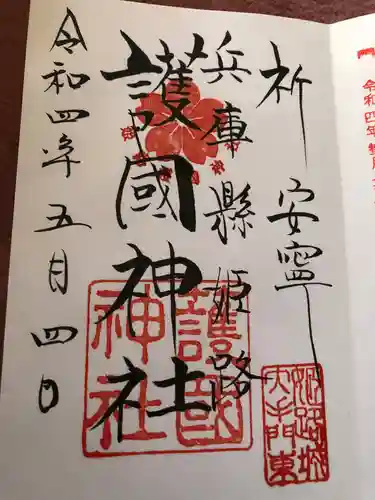 祈 安寧
兵庫縣姫路
護國神社
令和四年五月四日
護国
神社
姫路城
大手門東
令和四年